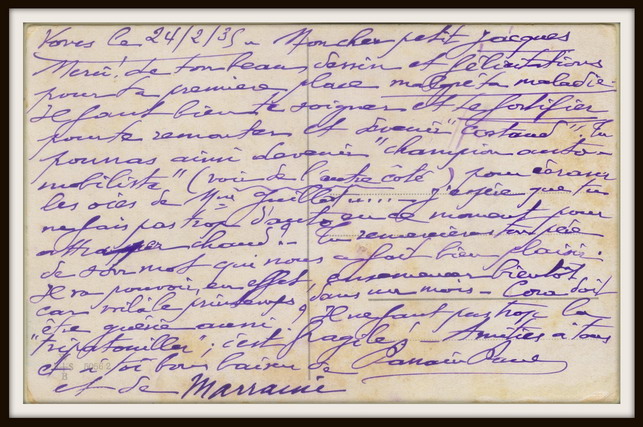 Voves le 24/2/35 Mon cher petit Jacques
Merci! de ton beau dessin et félicitations
pour ta première place malgré ta maladie.
Il faut bien te soigner et te fortifier
pour te remonter et devenir "costaud". Tu
pourras ainsi devenir "champion auto-
mobiliste" (voir de l'autre côté) pour écraser
les oies de Mme Guillot..... J'espère que tu
ne fais pas trop d'auto en ce moment pour
attraper chaud! - Tu remercieras ton père
de son mot qui nous a fait bien plaisir.
Il va pouvoir, en effet, emmener bientôt,
car voilà le printemps, dans un mois - Cora doit
être guérie aussi. Il ne faut pas trop la
"tripatouiller"; c'est fragile! - Amitiés à tous
et à toi bons baisers de Parrain Paul
et de Marraine